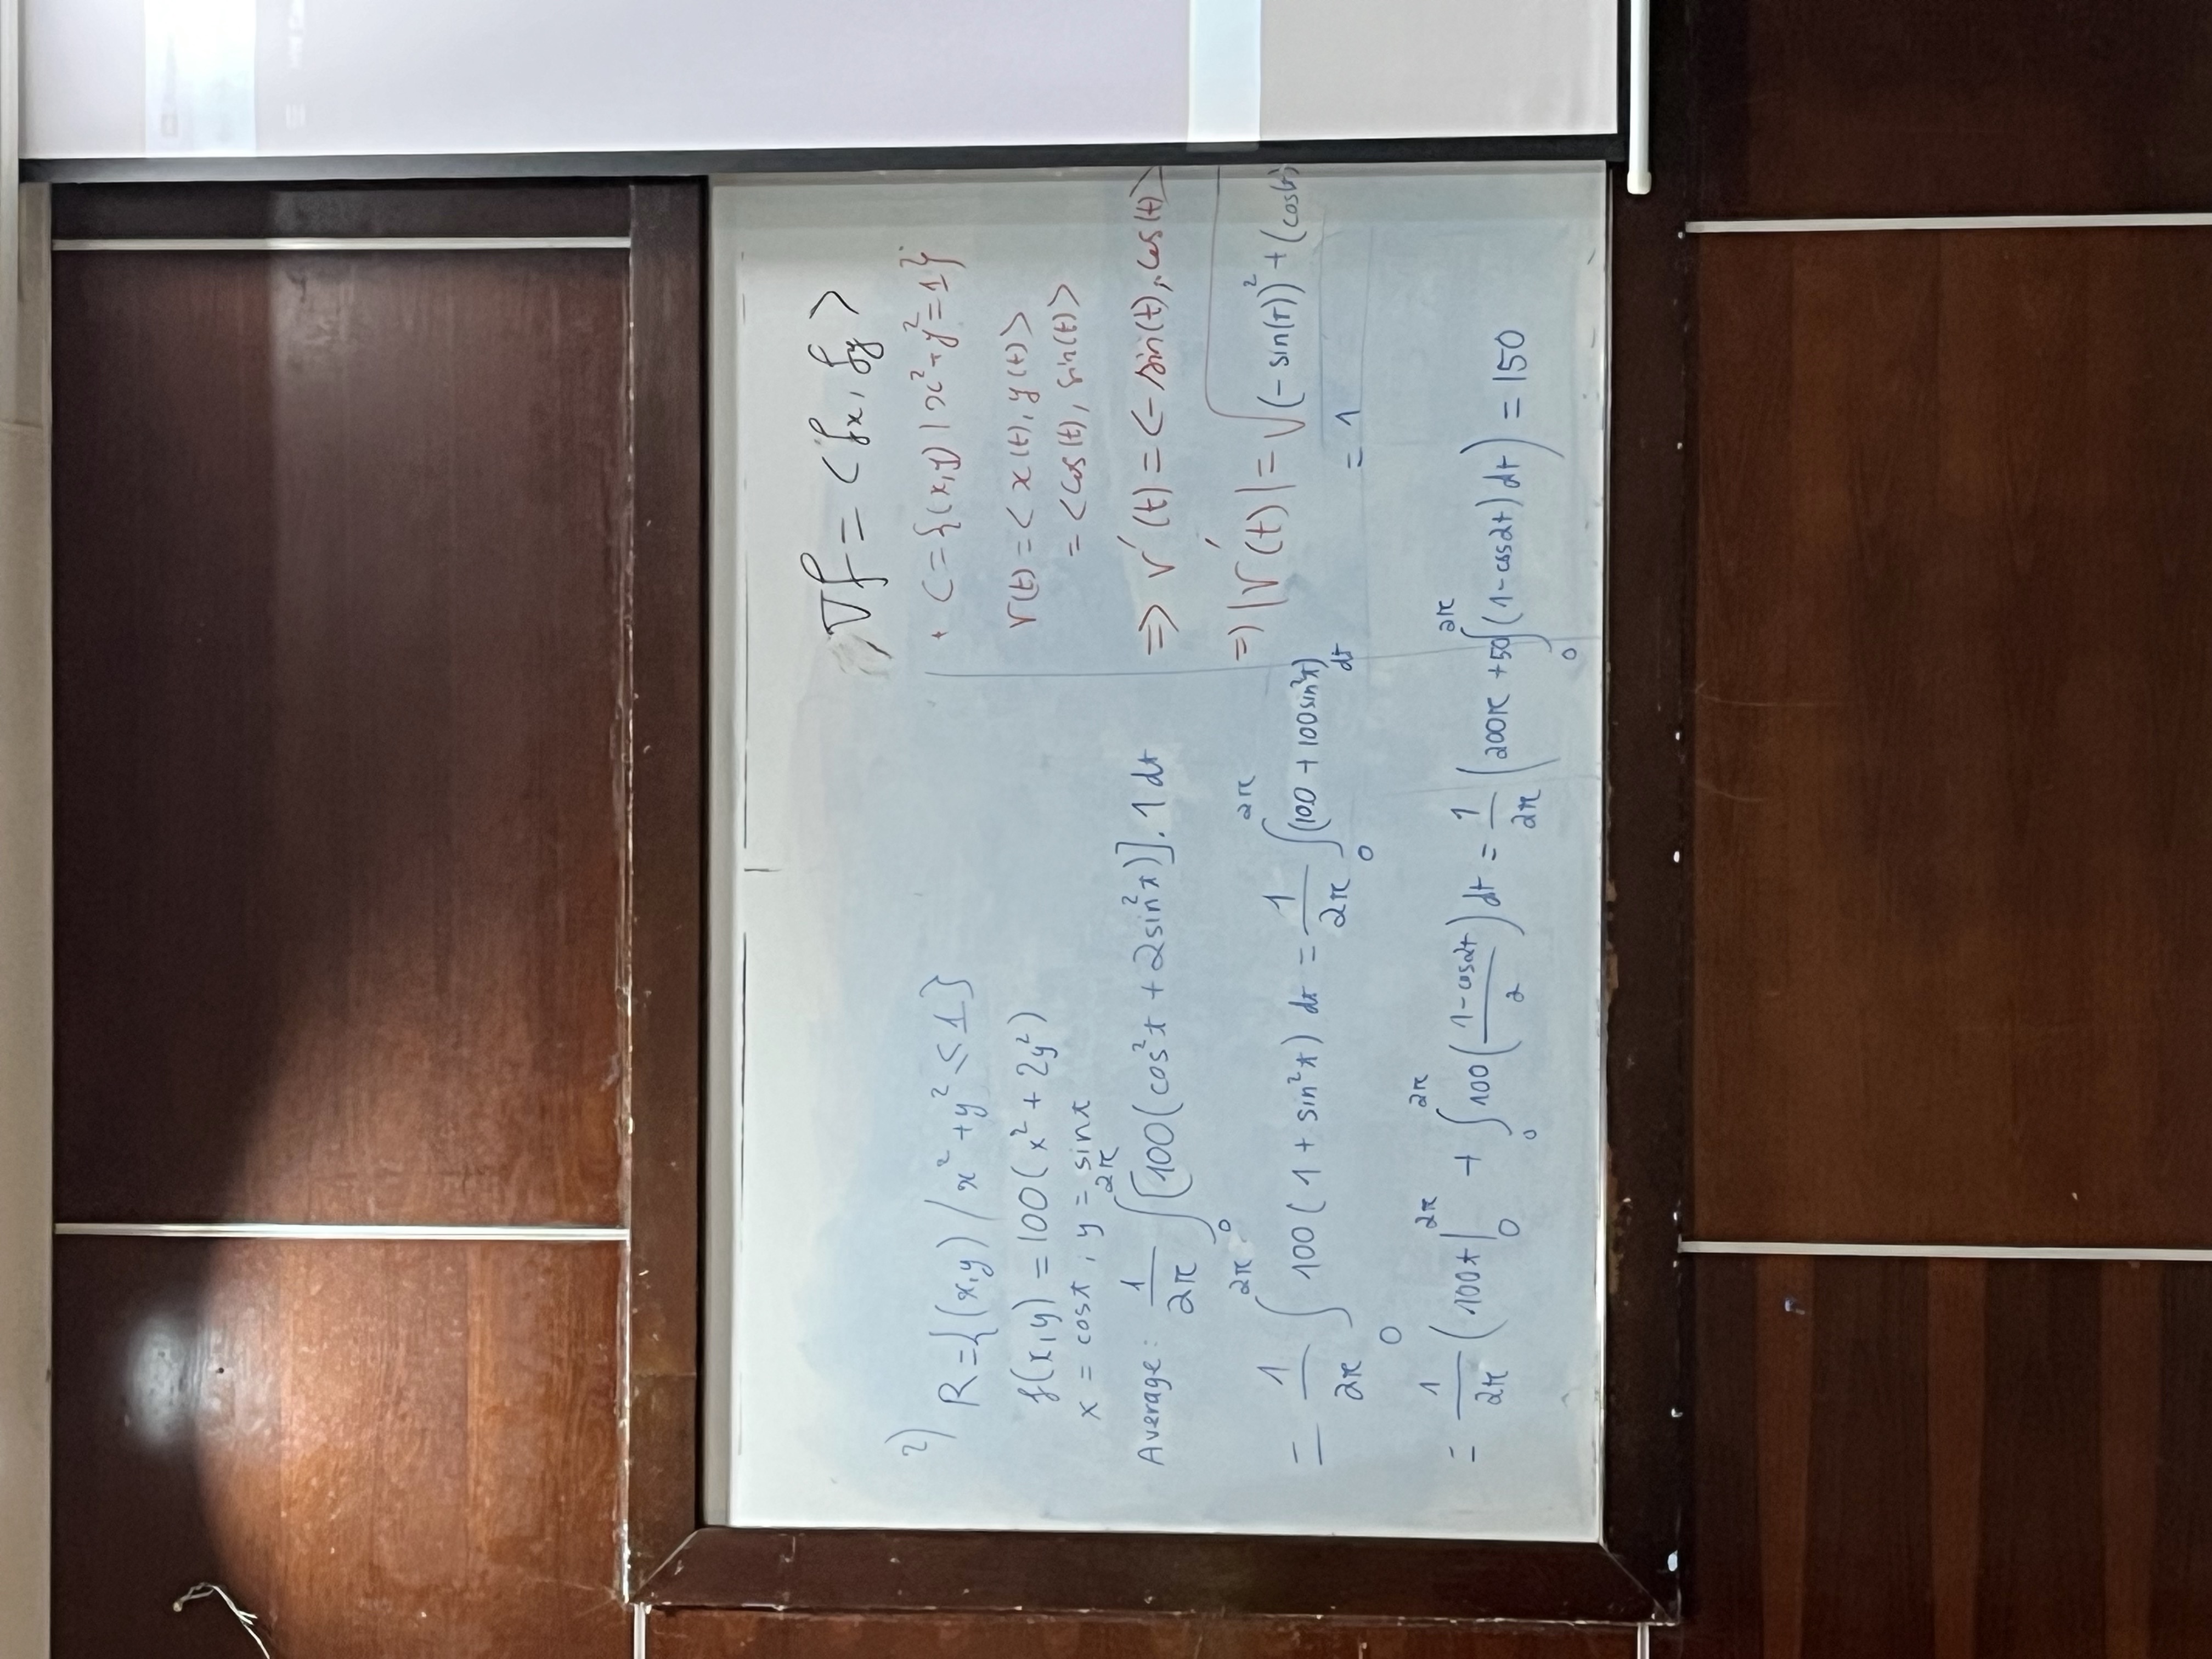 2)
R={(x,y) / x² + y² ≤ 1}
f(x,y) = 100(x² + 2y²)
x = cost, y = sint
Average: 1/2π ∫₀^2π [100(cos²t + 2sin²t)].1 dt
= 1/2π ∫₀^2π 100(1 + sin²t) dt = 1/2π ∫₀^2π (100 + 100sin²t) dt
= 1/2π (100t|₀^2π + ∫₀^2π 100((1-cos2t)/2) dt = 1/2π (200π + 50∫₀^2π (1-cos2t) dt) = 150
∇f = <fx, fy>
+ C={(x,y) | x²+y²=1}
r(t) = < x(t), y(t) >
= <cos(t), sin(t)>
=> r'(t) = <-sin(t), cos(t)>
=> |r'(t)| = √(-sin(t))² + (cos(t)
= 1